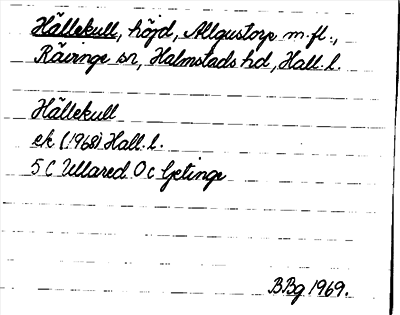 Hällekull, höjd, Allgustorp m.fl.,
Rävinge sn, Halmstads hd, Hall. l.
Hällekull
ek (1968) Hall. l.
5C Ullared 0c Getinge
BBg 1969.